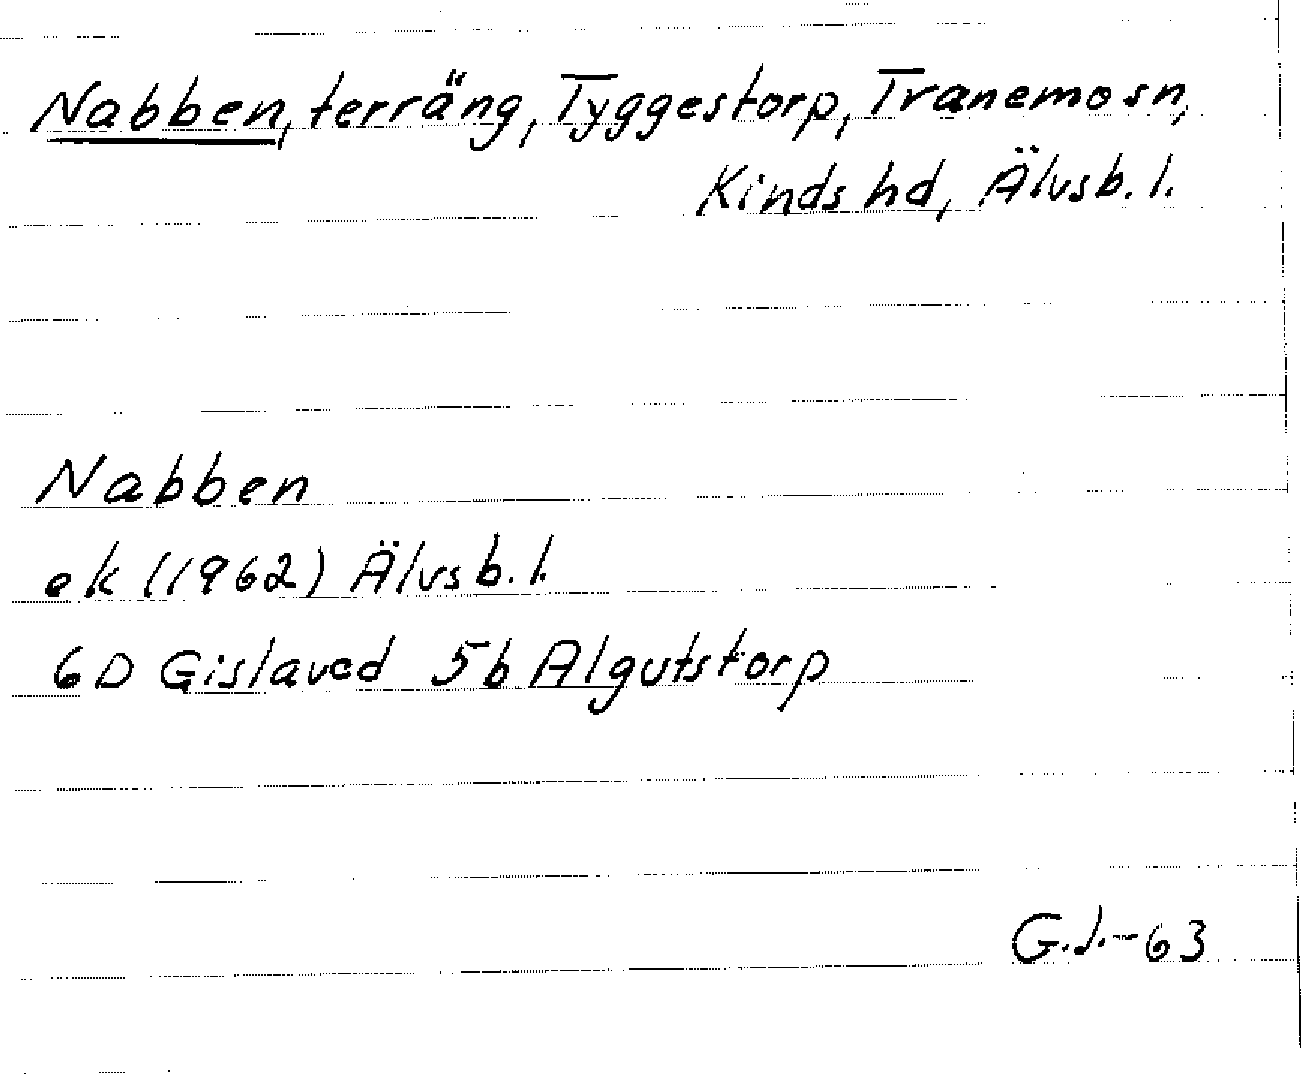 Nabben, terräng, Tyggestorp, Tranemo sn,
Kinds hd, Älvsb. l.
Nabben
ek (1962) Älvsb. l.
6D Gislaved 5b Algutstorp
G.J.-63